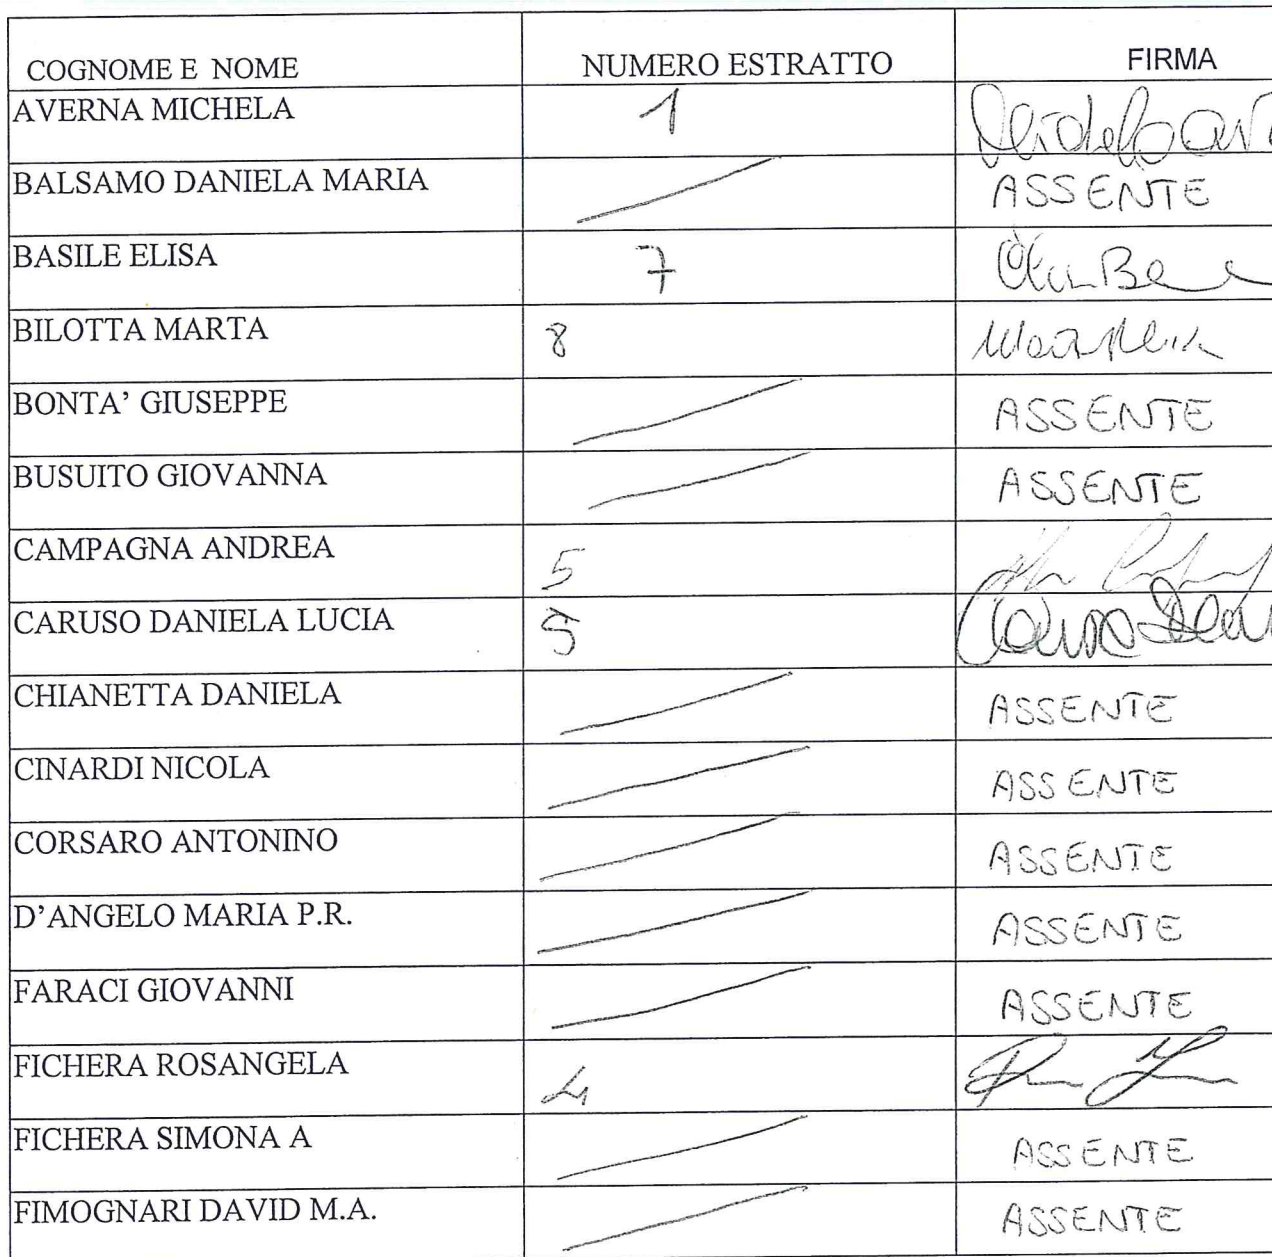 COGNOME E NOME NUMERO ESTRATTO FIRMA
AVERNA MICHELA 1
BALSAMO DANIELA MARIA ASSENTE
BASILE ELISA 7
BILOTTA MARTA 8
BONTA' GIUSEPPE ASSENTE
BUSUITO GIOVANNA ASSENTE
CAMPAGNA ANDREA 5
CARUSO DANIELA LUCIA
CHIANETTA DANIELA ASSENTE
CINARDI NICOLA ASSENTE
CORSARO ANTONINO ASSENTE
D'ANGELO MARIA P.R. ASSENTE
FARACI GIOVANNI ASSENTE
FICHERA ROSANGELA 4
FICHERA SIMONA A ASSENTE
FIMOGNARI DAVID M.A. ASSENTE